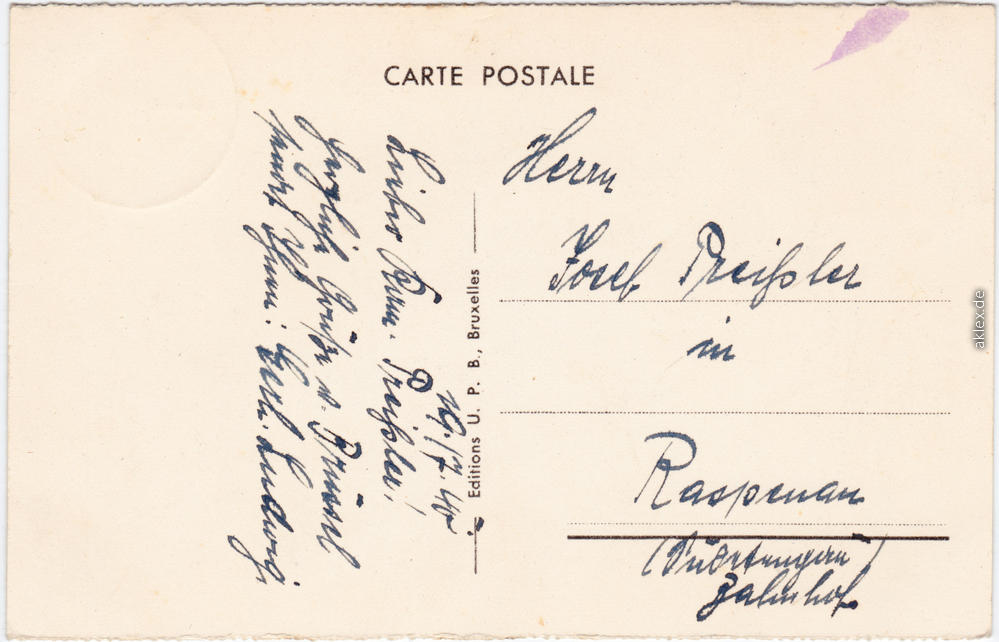 CARTE POSTALE
Herrn
Josef Preißler
in
Raspenau
Bahnhof
Editions U. P. B., Bruxelles
16./7. 40
Lieber Kam. Preißler!
Herzliche Grüße v. Brüssel
sendet Ihnen: Ludwig
aklex.de